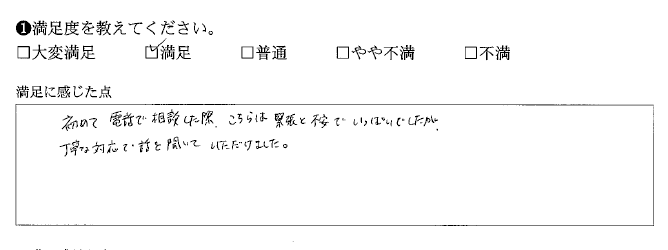 ❶満足度を教えてください。
□大変満足 ☑満足 □普通 □やや不満 □不満
満足に感じた点
初めて電話で相談した際、こちらは緊張と不安でいっぱいでしたが、
丁寧な対応で話を聞いていただけました。